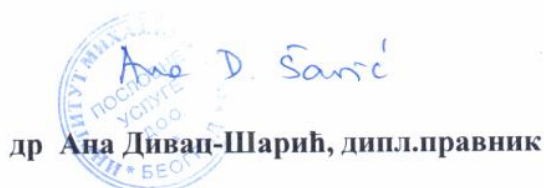 Ana D. Šarić
ИНСТИТУТ МИХАЈЛО
ПОСЛОВНЕ
УСЛУГЕ
Д.О.О.
БЕОГРАД
др Ана Дивац-Шарић, дипл.правник